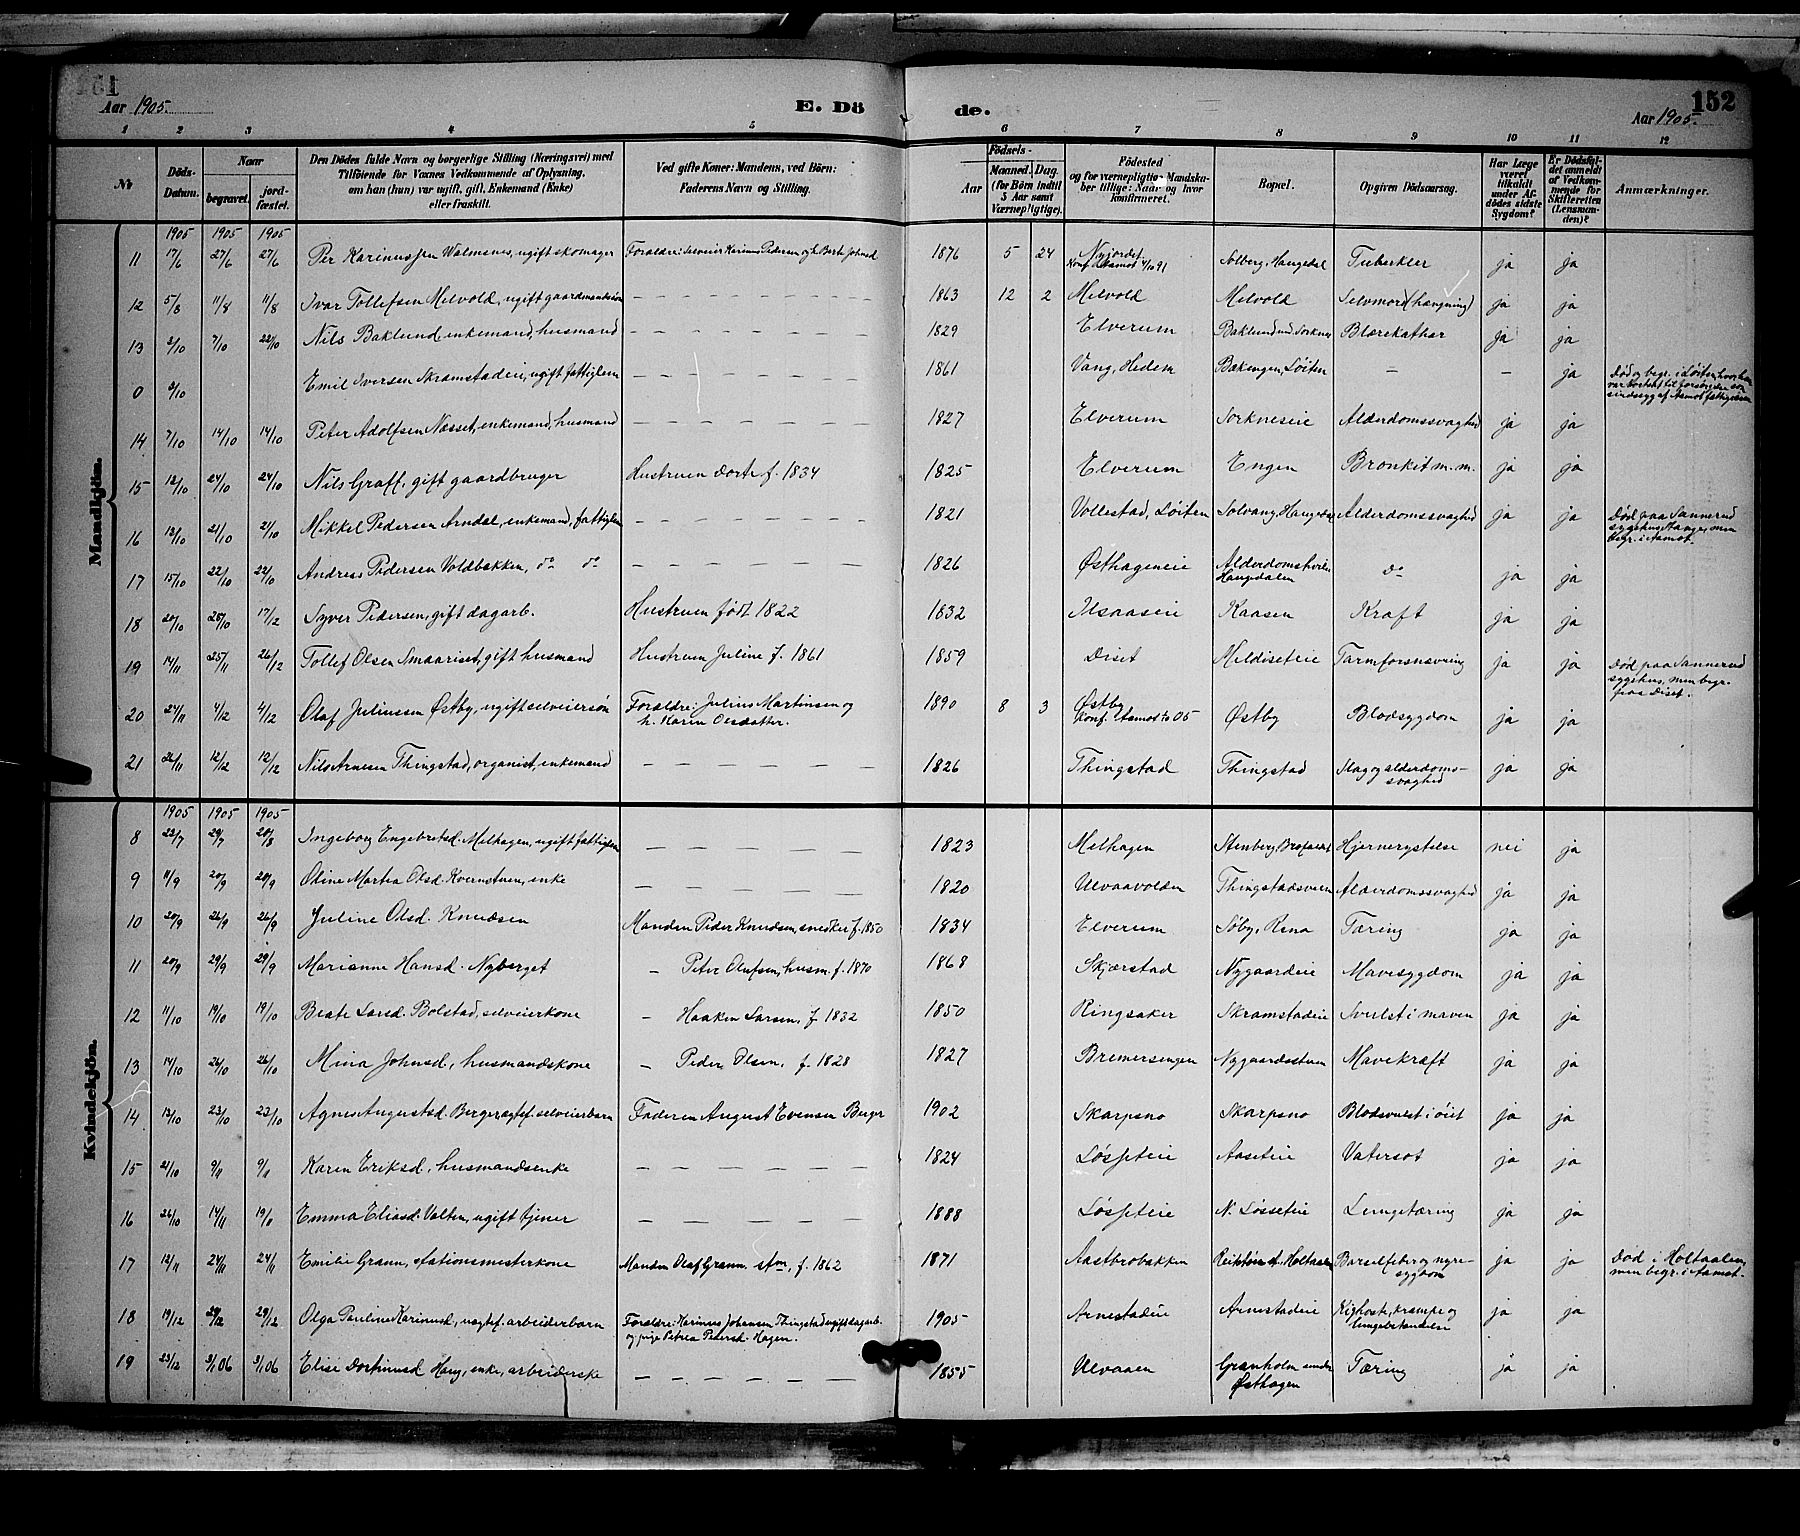 161
Aar 1905. E. Dö de. Aar 1905. 152
1 2 3 4 5 6 7 8 9 10 11 12
No Döds-Datum. Naar begravet. jordfæstet. Den Dödes fulde Navn og borgerlige Stilling (Næringsvei) med Tilföiende for Voxnes Vedkommende af Oplysning, om han (hun) var ugift, gift, Enkemand (Enke) eller fraskilt. Ved gifte Koner: Mandens, ved Börn: Faderens Navn og Stilling. Födsels- Aar Maaned. Dag. (for Börn indtil 5 Aar samt Værnepligtige). Födested og for værnepligtige Mandskaber tillige: Naar og hvor konfirmeret. Bopæl. Opgiven Dödsaarsag. Har Læge været tilkaldt under Afdödes sidste Sygdom? Er Dödsfaldet anmeldt af Vedkommende for Skifteretten (Lensmanden)? Anmærkninger.
Mandkjön.
1905 1905 1905
11 17/6 27/6 27/6 Per Karinussen Walmsnes, ugift skomager Foraldre: Selveier Karinus Pedersen og h. Berte Johnsd 1876 5 24 Nyjordet Konf. i Aamot 4/10 91 Solberg, Haugedal Tuberkler ja ja
12 5/8 11/8 11/8 Ivar Tollefsen Melvold, ugift gaardmandssøn – – – 1863 12 2 Melvold Melvold Selvmord (hængning) ja ja
13 2/10 7/10 22/10 Nils Baklund enkemand, husmand – – – 1829 Elverum Baklund und. Sorknes Blærekathar ja ja
0 3/10 Emil Iversen Skramstadeie, ugift fattiglem – – – 1861 Vang, Hedem Bakengen, Løiten – – ja Død og begr. i Løiten, hvor han var bortsat til forsørgelse som sindssyg af Aamot fattigvæsen
14 7/10 14/10 14/10 Peter Adolfsen Næsset, enkemand, husmand – – – 1827 Elverum Sorkneseie Alderdomssvaghed ja ja
15 12/10 24/10 24/10 Nils Graff, gift gaardbruger Hustruen Dorte f. 1834 1825 Elverum Engen Bronkit m. m. ja ja
16 13/10 21/10 21/10 Mikkel Pedersen Arndal, enkemand, fattiglem – – – 1821 Vollestad, Løiten Solvang, Haugedal Alderdomssvaghed ja ja Død paa Sannerud sygehus Stange, men begr. i Aamot.
17 15/10 22/10 22/10 Andreas Pedersen Voldbakken, do do – – – 1826 Østhageneie Alderdomshvilen Haugdalen do ja ja
18 20/10 25/10 17/12 Syver Pedersen, gift dagarb. Hustruen født 1822 1832 Ilsaaseie Kaasen Kraft ja ja
19 14/11 25/11 26/12 Tollef Olsen Smaariset, gift husmand Hustruen Juline f. 1861 1859 Diset Meldiseteie Tarmforsnevring ja ja Død paa Sannerud sygehus, men begr. paa Diset.
20 24/11 4/12 4/12 Olaf Juliussen Østby, ugift selveiersøn Foraldre: Julius Martinsen og h. Karen Olsdatter. 1890 8 3 Østby Konf. i Aamot 05 Østby Blodsygdom ja ja
21 26/11 12/12 12/12 Nils Arnesen Thingstad, organist, enkemand – – – 1826 Thingstad Thingstad Slag og alderdomssvaghed ja ja
Kvindekjön.
1905 1905 1905
8 23/7 29/7 20/8 Ingeborg Engebretsd. Melhagen, ugift fattiglem – – – 1823 Melhagen Stenberg, Hjernerystelse nei ja
9 11/9 20/9 20/9 Oline Martea Olsd. Kvernstuen, enke – – – 1820 Ulvaavolden Thingstadsveen Alderdomssvaghed ja ja
10 20/9 26/9 26/9 Juline Olsd. Knudsen Manden Peder Knudsen, snedker f. 1850 1834 Elverum Søby, Rena Tæring ja ja
11 20/9 29/9 29/9 Marianne Hansd. Nyberget – Peter Olufsen, husm. f. 1870 1868 Skjærstad Nygaardeie Mavesygdom ja ja
12 11/10 19/10 19/10 Beate Larsd. Bolstad, selveierkone – Haaken Larsen, f. 1832 1850 Ringsaker Skramstadeie Svulst i maven ja ja
13 14/10 26/10 26/10 Mina Johnsd, husmandskone – Peder Olsen, f. 1828 1827 Bremersengen Nygaardsstuen Mavekræft ja ja
14 13/10 23/10 23/10 Agnes Augustsd. Berger, ægtef. selveierbarn Faderen August Evensen Berger 1902 Skarpsno Skarpsno Blodsvulst i øiet ja ja
15 21/10 9/11 9/11 Karen Eriksd, husmandsenke – – – 1824 Løsseteie Aaseteie Vatersot ja ja
16 26/10 14/11 19/11 Emma Eliasd. Volten, ugift tjener – – – 1888 Løsseteie N. Løsseteie Lungetæring ja ja
17 12/11 24/11 24/11 Emilie Grann, stationsmesterkone Manden Olaf Grann, stm, f. 1862 1871 Aastbrobakken Reitstøen st. Holtaalen Barselfeber og nyresygdom ja ja Død i Holtaalen, men begr. i Aamot.
18 19/12 29/12 29/12 Olga Pauline Karinusd, uægtef. arbeiderbarn Foraldre: Karinus Johansen Thingstad ugift dagarb. og pige Petrea Pedersd. Hagen. 1905 Arnestadeie Arnestadeie Kighoste, krampe og lungebetændelse ja ja
19 23/12 3/1 06 3/1 06 Elise Dortinusd Haug, enke, arbeiderske – – – 1855 Ulvaaen Granholm under Østhagen Tæring ja ja